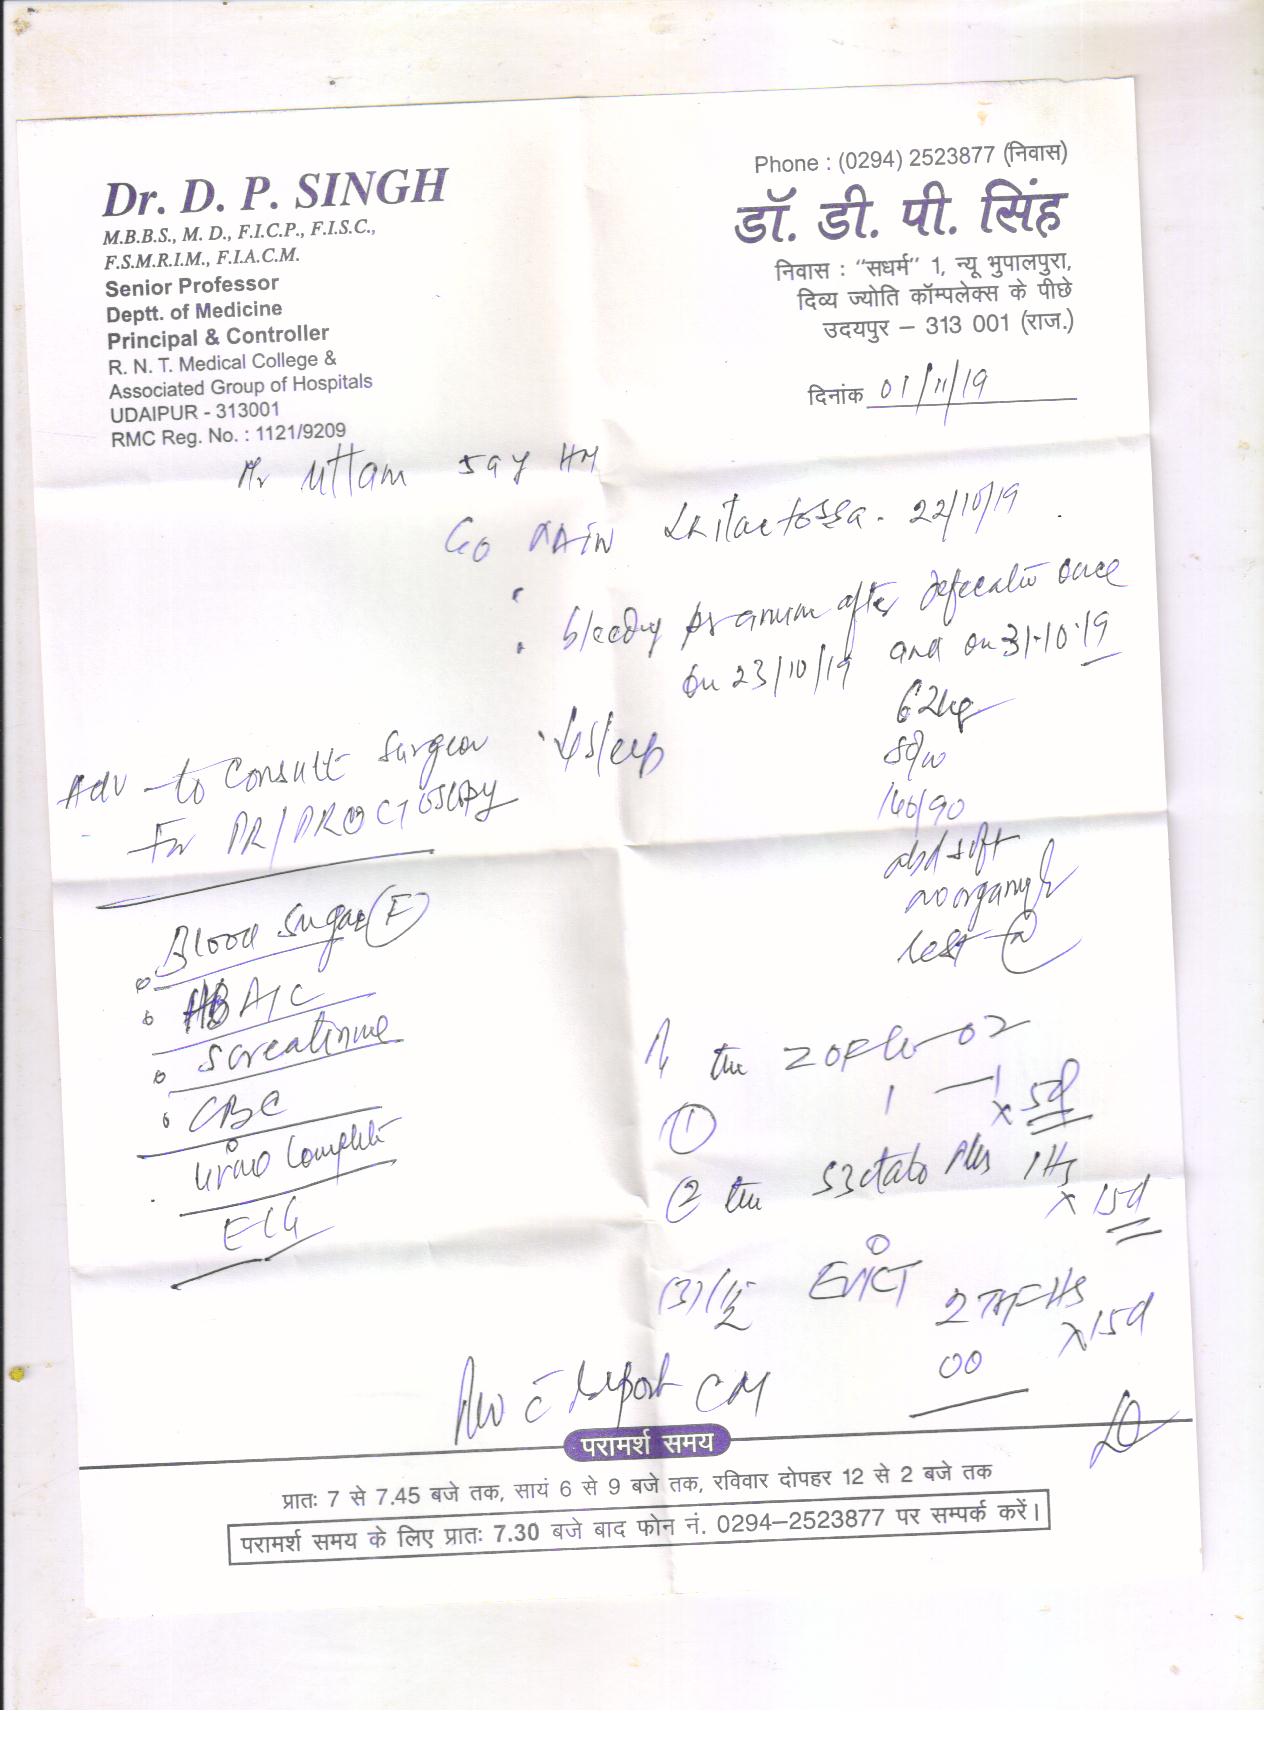 Dr. D. P. SINGH
M.B.B.S., M. D., F.I.C.P., F.I.S.C.,
F.S.M.R.I.M., F.I.A.C.M.
Senior Professor
Deptt. of Medicine
Principal & Controller
R. N. T. Medical College &
Associated Group of Hospitals
UDAIPUR - 313001
RMC Reg. No. : 1121/9209
Phone : (0294) 2523877 (निवास)
डॉ. डी. पी. सिंह
निवास : "सधर्म" 1, न्यू भुपालपुरा,
दिव्य ज्योति कॉम्पलेक्स के पीछे
उदयपुर – 313 001 (राज.)
दिनांक 01/11/19
Mr Uttam 59y HM
C/o PAIN Lt iliac fossa. 22/10/19
bleeding per anum after defecation once
on 23/10/19 and on 31.10.19
62kg
140/90
abd soft
no organ
rest N
Adv to consult Surgeon
For PR/PROCTOSCOPY
Blood Sugar (F)
HBA1C
S creatinine
CBC
Urine Complete
ECG
the 02
1 — 1 x 5d
①
② plus 1HS
x 15d
(3) EVICT
2 TSF HS
x 15d
Rev c report CM
परामर्श समय
प्रातः 7 से 7.45 बजे तक, सायं 6 से 9 बजे तक, रविवार दोपहर 12 से 2 बजे तक
परामर्श समय के लिए प्रातः 7.30 बजे बाद फोन नं. 0294–2523877 पर सम्पर्क करें।